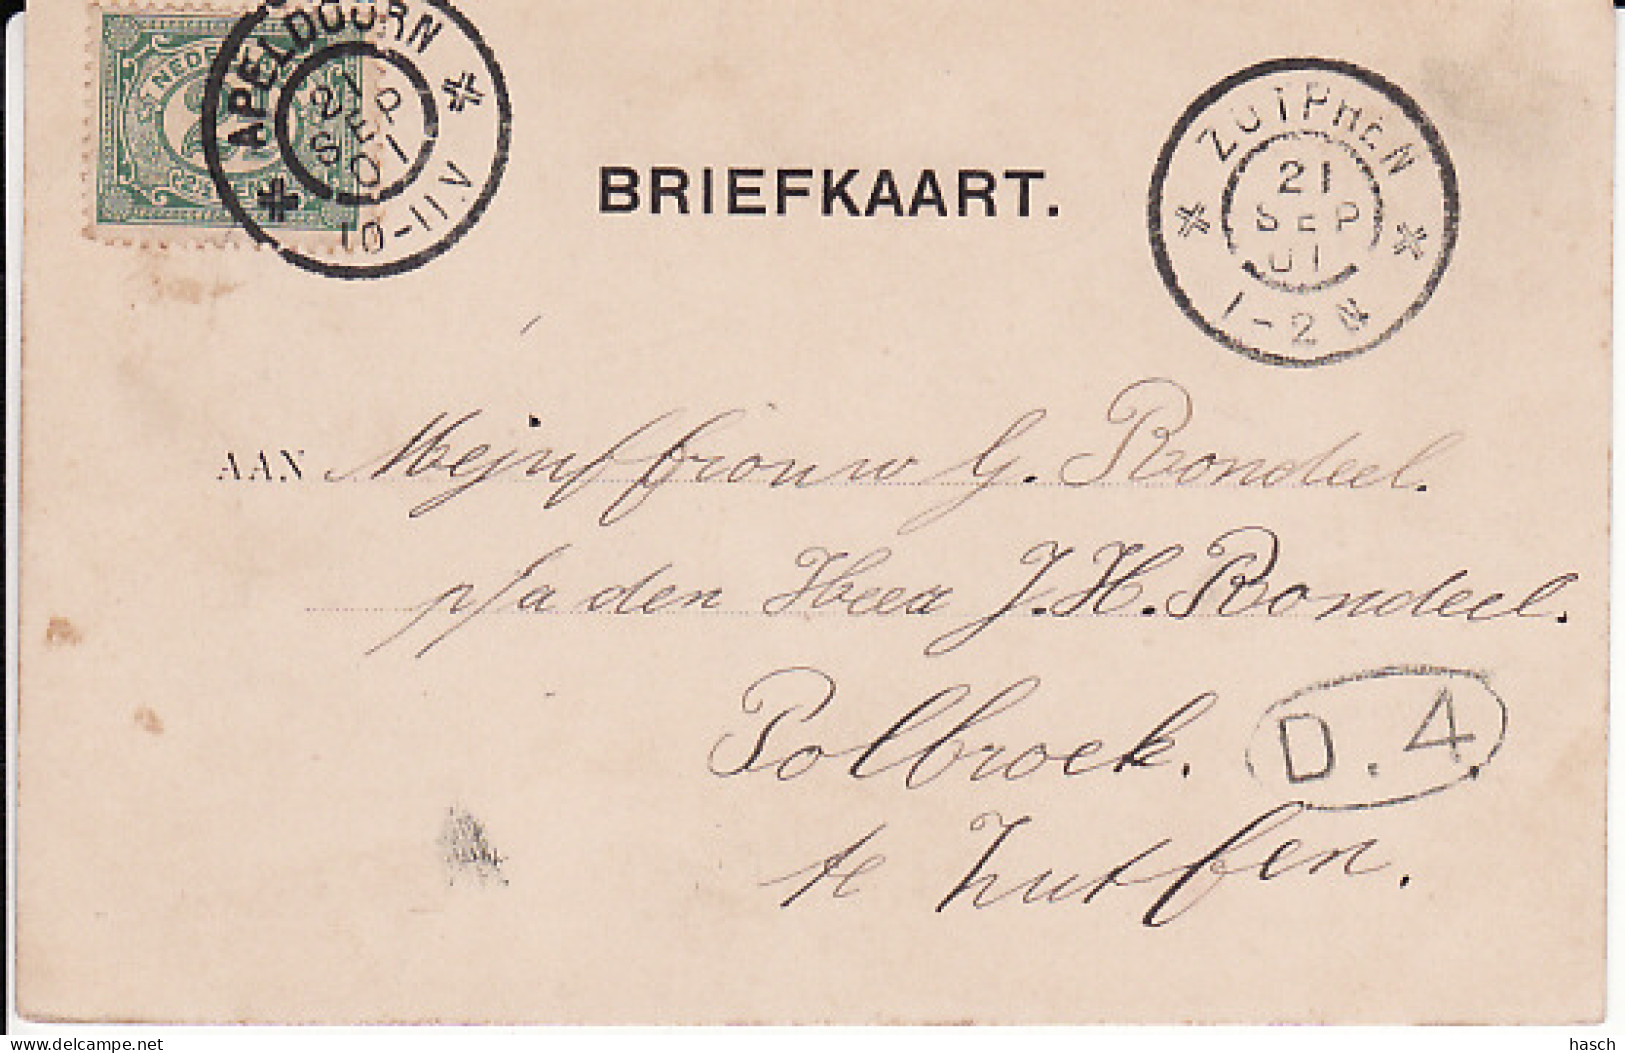 NEDE
APELDOORN
21 SEP 01
10-11 V
BRIEFKAART.
ZUTPHEN
21
SEP
01
1-2 N
AAN Mejuffrouw G. Rondeel.
p/a den Heer J. H. Rondeel.
Polbroek. D. 4.
te Zutfen.
hasch
delcampe.net